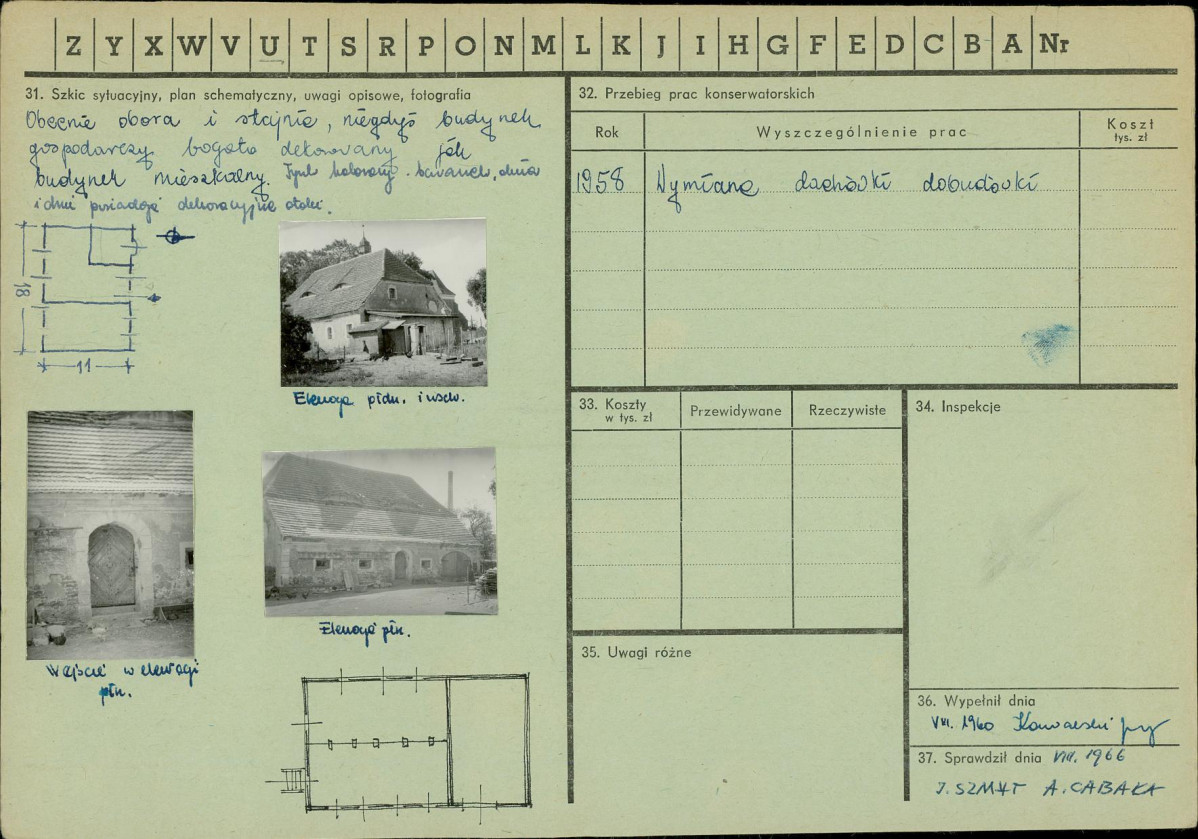 Z Y X W V U T S R P O N M L K J I H G F E D C B A Nr
31. Szkic sytuacyjny, plan schematyczny, uwagi opisowe, fotografia
Obecnie obora i stajnia, niegdyś budynek
gospodarczy bogato dekorowany jak
budynek mieszkalny. Tynk kolorowy - baranek, okna
i drzwi posiadają dekoracyjne
18
11
Elewacja płdn. i wsch.
Elewacja płn.
Wejście w elewacji
płn.
32. Przebieg prac konserwatorskich
Rok Wyszczególnienie prac Koszt
tys. zł
1958 Wymiana dachówki dobudówki
33. Koszty
w tys. zł
Przewidywane Rzeczywiste
34. Inspekcje
35. Uwagi różne
36. Wypełnił dnia
VIII. 1960
37. Sprawdził dnia VIII. 1966
J. SZMYT A. CABAŁA